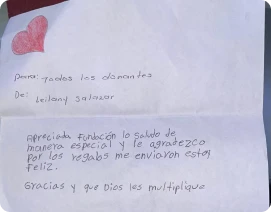 para: Todos los donantes
De: Leilany Salazar
Apreciada Fundación lo saludo de
manera especial y le agradezco
por los regalos me enviaron estoy
Feliz.
Gracias y que Dios les multiplique